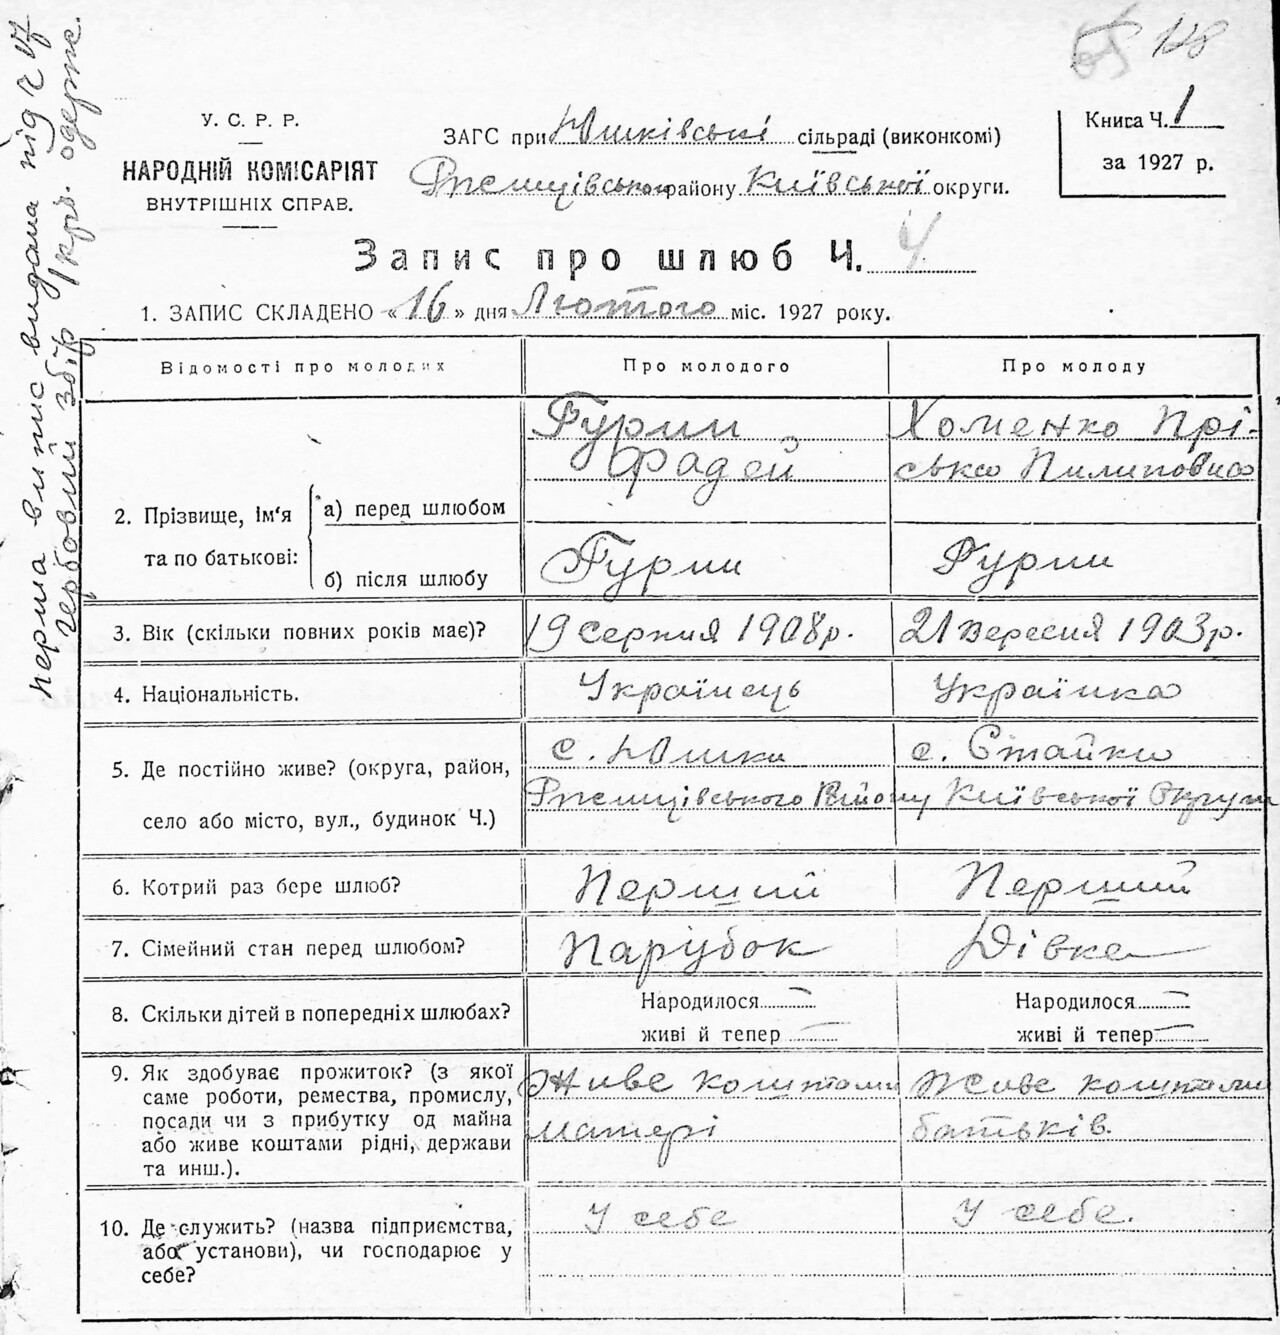 128
У. С. Р. Р.
НАРОДНІЙ КОМІСАРІЯТ
ВНУТРІШНІХ СПРАВ.
ЗАГС при Юшківські сільраді (виконкомі)
Ржищівського району Київської округи.
Книга Ч. 1
за 1927 р.
Запис про шлюб Ч. 4
1. ЗАПИС СКЛАДЕНО «16» дня Лютого міс. 1927 року.
Відомості про молодих
Про молодого
Про молоду
2. Прізвище, ім'я та по батькові:
а) перед шлюбом
Гурин
Фадей
Хоменко Прі-
ська Пилиповна
б) після шлюбу
Гурин
Гурин
3. Вік (скільки повних років має)?
19 серпня 1908 р.
21 вересня 1903 р.
4. Національність.
Українець
Українка
5. Де постійно живе? (округа, район,
село або місто, вул., будинок Ч.)
с. Юшки
с. Стайки
Ржищівського Району Київської Округи
6. Котрий раз бере шлюб?
Перший
Перший
7. Сімейний стан перед шлюбом?
Парубок
Дівка
8. Скільки дітей в попередніх шлюбах?
Народилося —
живі й тепер —
Народилося —
живі й тепер —
9. Як здобуває прожиток? (з якої
саме роботи, ремества, промислу,
посади чи з прибутку од майна
або живе коштами рідні, держави
та инш.).
Живе коштами
матері
Живе коштами
батьків.
10. Де служить? (назва підприємства,
або установи), чи господарює у
себе?
У себе
У себе.
Перша випис видана під ч 17
гербовий збір 1 крб. одерж.